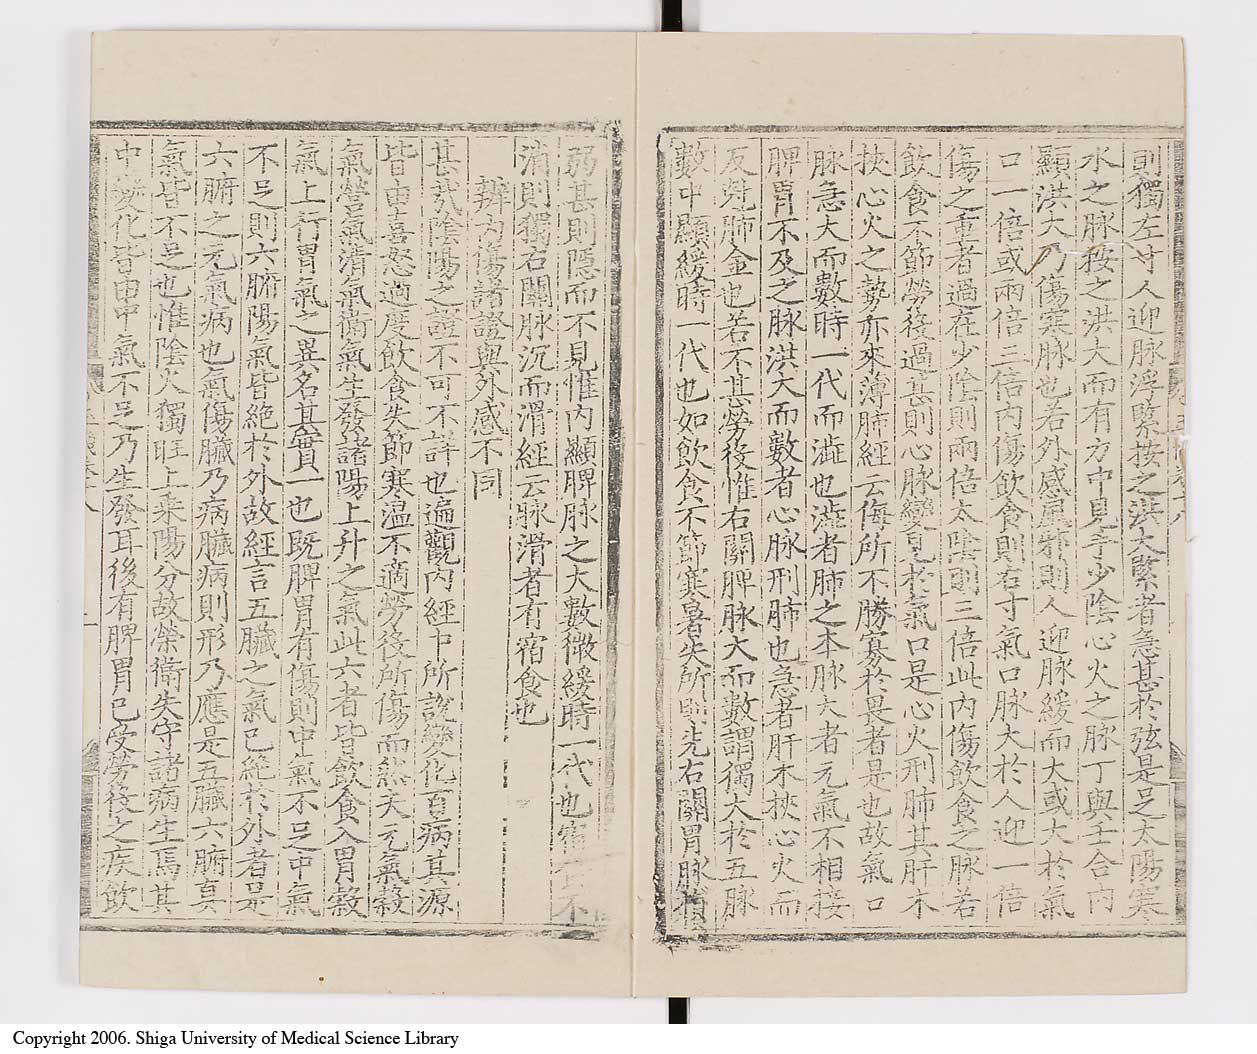 則獨左寸人迎脉浮緊按之洪大緊者急甚於弦是足太陽寒
水之脉按之洪大而有方中見手少陰心火之脉丁與壬合内
顯洪大乃傷寒脉也若外感風邪則人迎脉緩而大或大於氣
口一倍或兩倍三倍内傷飲食則右寸氣口脉大於人迎一倍
傷之重者過在少陰則兩倍太陰則三倍此内傷飲食之脉若
飲食不節勞役過甚則心脉變見於氣口是心火刑肺其肝木
挾心火之勢亦來薄肺經云侮所不勝寡於畏者是也故氣口
脉急大而數時一代而澁也澁者肺之本脉大者元氣不相接
脾胃不及之脉洪大而數者心脉刑肺也急者肝木挾心火而
反尅肺金也若不甚勞役惟右關脾脉大而數謂獨大於五脉
數中顯緩時一代也如飲食不節寒暑失所則先右關胃脉
弱甚則隱而不見惟内顯脾脉之大數微緩時一代也宿食不
消則獨右關脉沉而滑經云脉滑者有宿食也
辨内傷諸證與外感不同
甚哉陰陽之證不可不詳也遍觀内經中所說變化百病其源
皆由喜怒過度飲食失節寒温不適勞役所傷而然夫元氣穀
氣營氣清氣衛氣生發諸陽上升之氣此六者皆飲食入胃穀
氣上行胃氣之異名其實一也既脾胃有傷則中氣不足中氣
不足則六腑陽氣皆絶於外故經言五臟之氣已絶於外者是
六腑之元氣病也氣傷臟乃病臟病則形乃應是五臟六腑真
氣皆不足也惟陰火獨旺上乘陽分故榮衛失守諸病生焉其
中變化皆由中氣不足乃生發耳後有脾胃已受勞役之疾飲
Copyright 2006. Shiga University of Medical Science Library